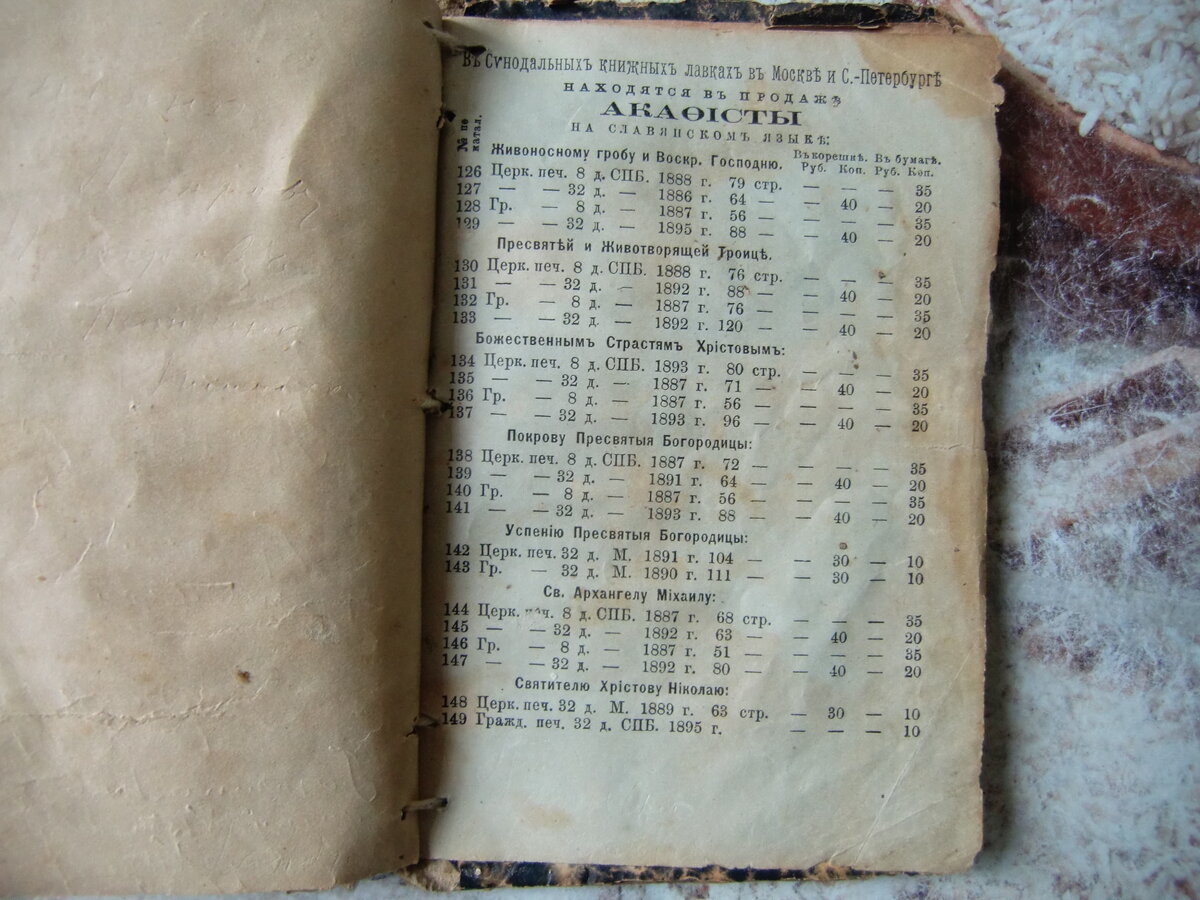 Въ Сѵнодальныхъ книжныхъ лавкахъ въ Москвѣ и С.-Петербургѣ
НАХОДЯТСЯ ВЪ ПРОДАЖѢ
АКАѲІСТЫ
НА СЛАВЯНСКОМЪ ЯЗЫКѢ:
№ по катал.
Живоносному гробу и Воскр. Господню. Въ корешкѣ. Въ бумагѣ.
Руб. Коп. Руб. Коп.
126 Церк. печ. 8 д. СПБ. 1888 г. 79 стр. — — — 35
127 — — 32 д. — 1886 г. 64 — — 40 — 20
128 Гр. — 8 д. — 1887 г. 56 — — — — 35
129 — — 32 д. — 1895 г. 88 — — 40 — 20
Пресвятѣй и Животворящей Троицѣ.
130 Церк. печ. 8 д. СПБ. 1888 г. 76 стр. — — — 35
131 — — 32 д. — 1892 г. 88 — — 40 — 20
132 Гр. — 8 д. — 1887 г. 76 — — — — 35
133 — — 32 д. — 1892 г. 120 — — 40 — 20
Божественнымъ Страстямъ Хрістовымъ:
134 Церк. печ. 8 д. СПБ. 1893 г. 80 стр. — — — 35
135 — — 32 д. — 1887 г. 71 — — 40 — 20
136 Гр. — 8 д. — 1887 г. 56 — — — — 35
137 — — 32 д. — 1893 г. 96 — — 40 — 20
Покрову Пресвятыя Богородицы:
138 Церк. печ. 8 д. СПБ. 1887 г. 72 — — — — 35
139 — — 32 д. — 1891 г. 64 — — 40 — 20
140 Гр. — 8 д. — 1887 г. 56 — — — — 35
141 — — 32 д. — 1893 г. 88 — — 40 — 20
Успенію Пресвятыя Богородицы:
142 Церк. печ. 32 д. М. 1891 г. 104 — — 30 — 10
143 Гр. — 32 д. М. 1890 г. 111 — — 30 — 10
Св. Архангелу Міхаилу:
144 Церк. печ. 8 д. СПБ. 1887 г. 68 стр. — — — 35
145 — — 32 д. — 1892 г. 63 — — 40 — 20
146 Гр. — 8 д. — 1887 г. 51 — — — — 35
147 — — 32 д. — 1892 г. 80 — — 40 — 20
Святителю Хрістову Ніколаю:
148 Церк. печ. 32 д. М. 1889 г. 63 стр. — 30 — 10
149 Гражд. печ. 32 д. СПБ. 1895 г. — — — 10